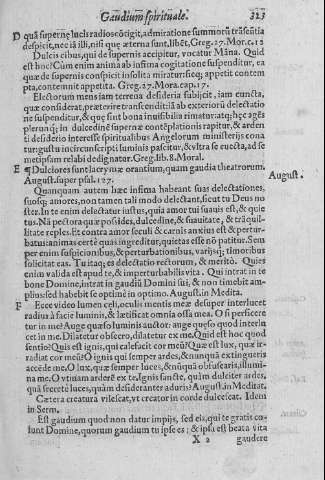 Gaudium spirituale. 323
D quā supernę lucis radios cōtigit, admiratione summorū trāscūtia
despicit, nec iā illi, nisi quę æterna sunt, libēt, Greg. 27. Mor. c. 15
Dulcis cibus, qui de supernis accipitur, vocatur Māna. Quid
est hoc? Cùm enim anima ab infima cogitatione suspenditur, ea
quæ de supernis conspicit insolita miratur: sicq; appetit contem
pta, contemnit appetita. Greg. 27. Mora. cap. 17.
Electorum mens iam terrena desideria subijcit, iam cuncta,
quæ considerat, præterire transcendit: iā ab exteriorū delectatio
ne suspenditur, & quę sint bona inuisibilia rimatur: atq; hęc agēs
plerunq; in dulcedinē supernæ contēplationis rapitur, & arden
ti desiderio interesse spiritualibus Angelorum ministerijs cona
tur: gustu incircunscripti luminis pascitur, & vltra se euecta, ad se
metipsam relabi dedignatur. Greg. lib. 8. Moral.
E ¶ Dulciores sunt lacrymæ orantium, quam gaudia theatrorum.
August. super psal. 127.
August.
Quamquam autem hæc infima habeant suas delectationes,
suosq; amores, non tamen tali modo delectant, sicut tu Deus no
ster. In te enim delectatur iustus, quia amor tui suauis est, & quie
tus. Nā pectora quæ possides, dulcedine, & suauitate, & trāquil-
litate reples. Et contra amor seculi & carnis anxius est & pertur-
batus: animas certè quas ingreditur, quietas esse nō patitur. Sem
per enim suspicionibus, & perturbationibus, varijsq; timoribus
solicitat eas. Tu itaq; es delectatio rectorum, & meritò. Quies
enim valida est apud te, & imperturbabilis vita. Qui intrat in te
bone Domine, intrat in gaudiū Domini sui, & non timebit am-
plius: sed habebit se optimè in optimo. August. in Medita.
F Ecce video lumen cęli, oculis mentis meæ desuper interlucet
radius à facie luminis, & lætificat omnia ossa mea. O si persicere
tur in me! Auge quæso luminis auctor: auge quęso quod interlu
cet in me. Dilatetur obsecro, dilatetur ex me. Quid est hoc quod
sentio? Quis est ignis, qui calefacit cor meū? Quæ est lux, quæ ir-
radiat cor meū? O ignis qui semper ardes, & nunquā extingueris
accēde me. O lux, quæ semper luces, & nūquā obfuscaris, illumi-
na me. O vtinam arderē ex te. Ignis sancte, quàm dulciter ardes,
quā secretè luces, quàm desideranter aduris? August. in Meditat.
Cætera creatura vilescat, vt creator in corde dulcescat. Idem
in Serm.
Est gaudium quod non datur impijs, sed eis, qui te gratis co-
lunt Domine, quorum gaudium tu ipse es; & ipsa est beata vita
X 2 gaudere